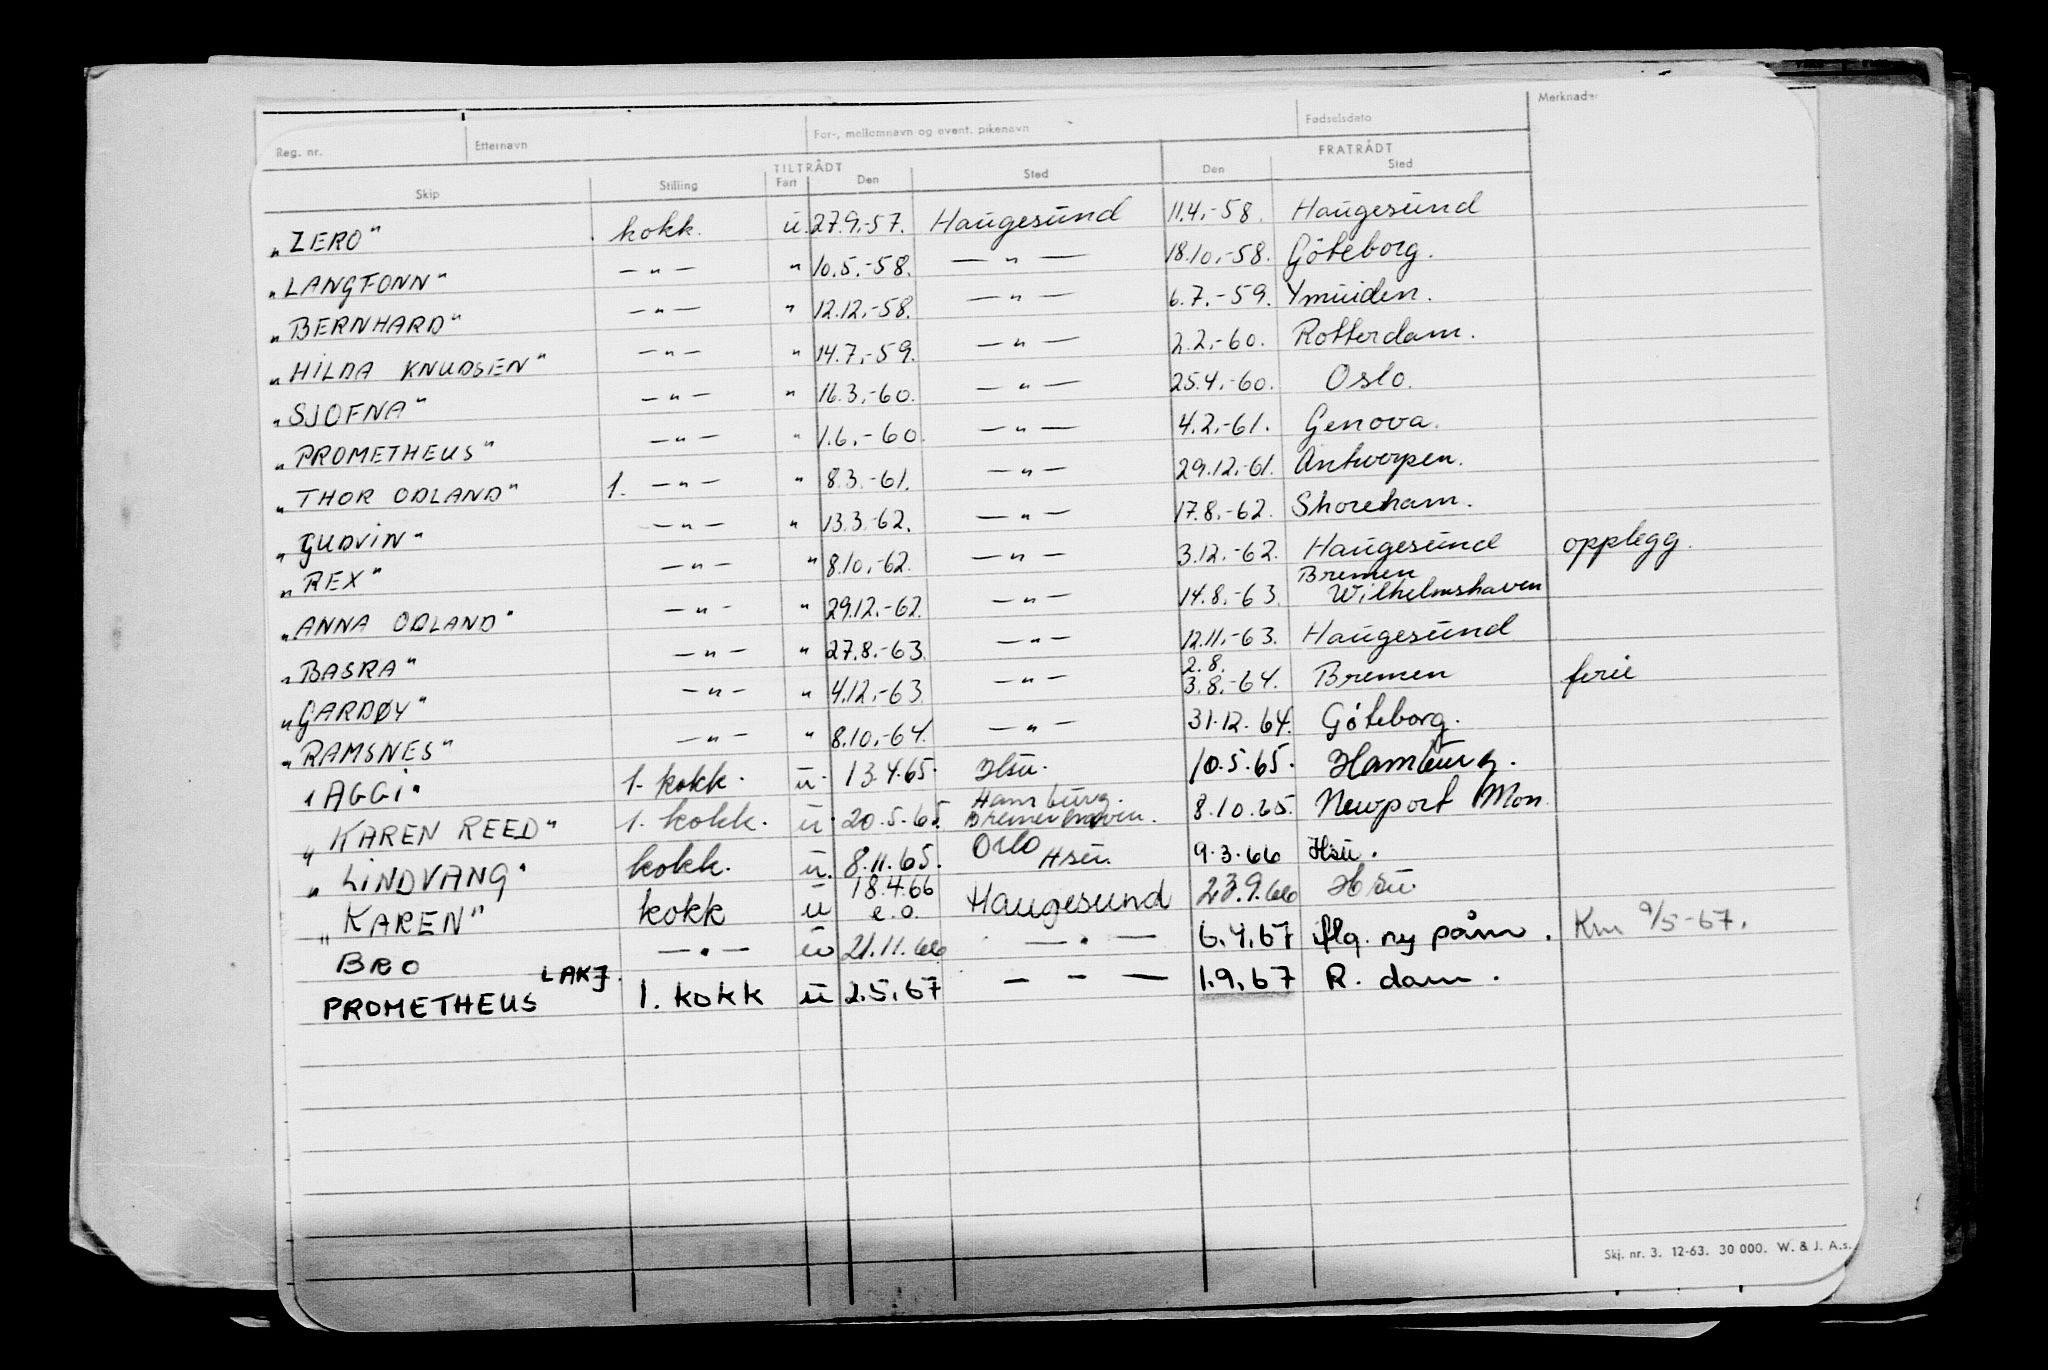 Reg. nr. Etternavn For-, mellomnavn og event. pikenavn Fødselsdato Merknader
TILTRÅDT FRATRÅDT
Skip Stilling Fart Den Sted Den Sted
"ZERO" kokk. u. 27.9.-57. Haugesund 11.4.-58. Haugesund
"LANGFONN" — " — " 10.5.-58. — " — 18.10.-58. Göteborg.
"BERNHARD" — " — " 12.12.-58. — " — 6.7.-59. Ymuiden.
"HILDA KNUDSEN" — " — " 14.7.-59. — " — 2.2.-60. Rotterdam.
"SJOFNA" — " — " 16.3.-60. — " — 25.4.-60. Oslo.
"PROMETHEUS" — " — " 1.6.-60. — " — 4.2.-61. Genova.
"THOR ODLAND" 1. — " — " 8.3.-61. — " — 29.12.-61. Antwerpen.
"GUDVIN" — " — " 13.3.-62. — " — 17.8.-62. Shoreham.
"REX" — " — " 8.10.-62. — " — 3.12.-62. Haugesund opplegg.
"ANNA ODLAND" — " — " 29.12.-62. — " — 14.8.-63. Bremen
Wilhelmshaven
"BASRA" — " — " 27.8.-63. — " — 12.11.-63. Haugesund
2.8.
"GARDØY" — " — " 4.12.-63. — " — 3.8.-64. Bremen ferie
"RAMSNES" — " — " 8.10.-64. — " — 31.12.64. Göteborg.
"AGGI" 1. kokk. u. 13.4.65. Hsu. 10.5.65. Hamburg.
Hamburg.
"KAREN REED" 1. kokk. u. 20.5.65. Bremerhaven. 8.10.65. Newport Mon
"LINDVANG" kokk. u. 8.11.65. Oslo Hsu. 9.3.66 Hsu.
18.4.66
"KAREN" kokk u e.o. Haugesund 23.9.66 Hsu
BRO — " — u 21.11.66 — " — 6.4.67 flg. ny påm. Km 9/5-67.
LAKJ.
PROMETHEUS 1. kokk u 2.5.67 — - — 1.9.67 R.dam.
Skj. nr. 3. 12-63. 30 000. W. & J. A.s.